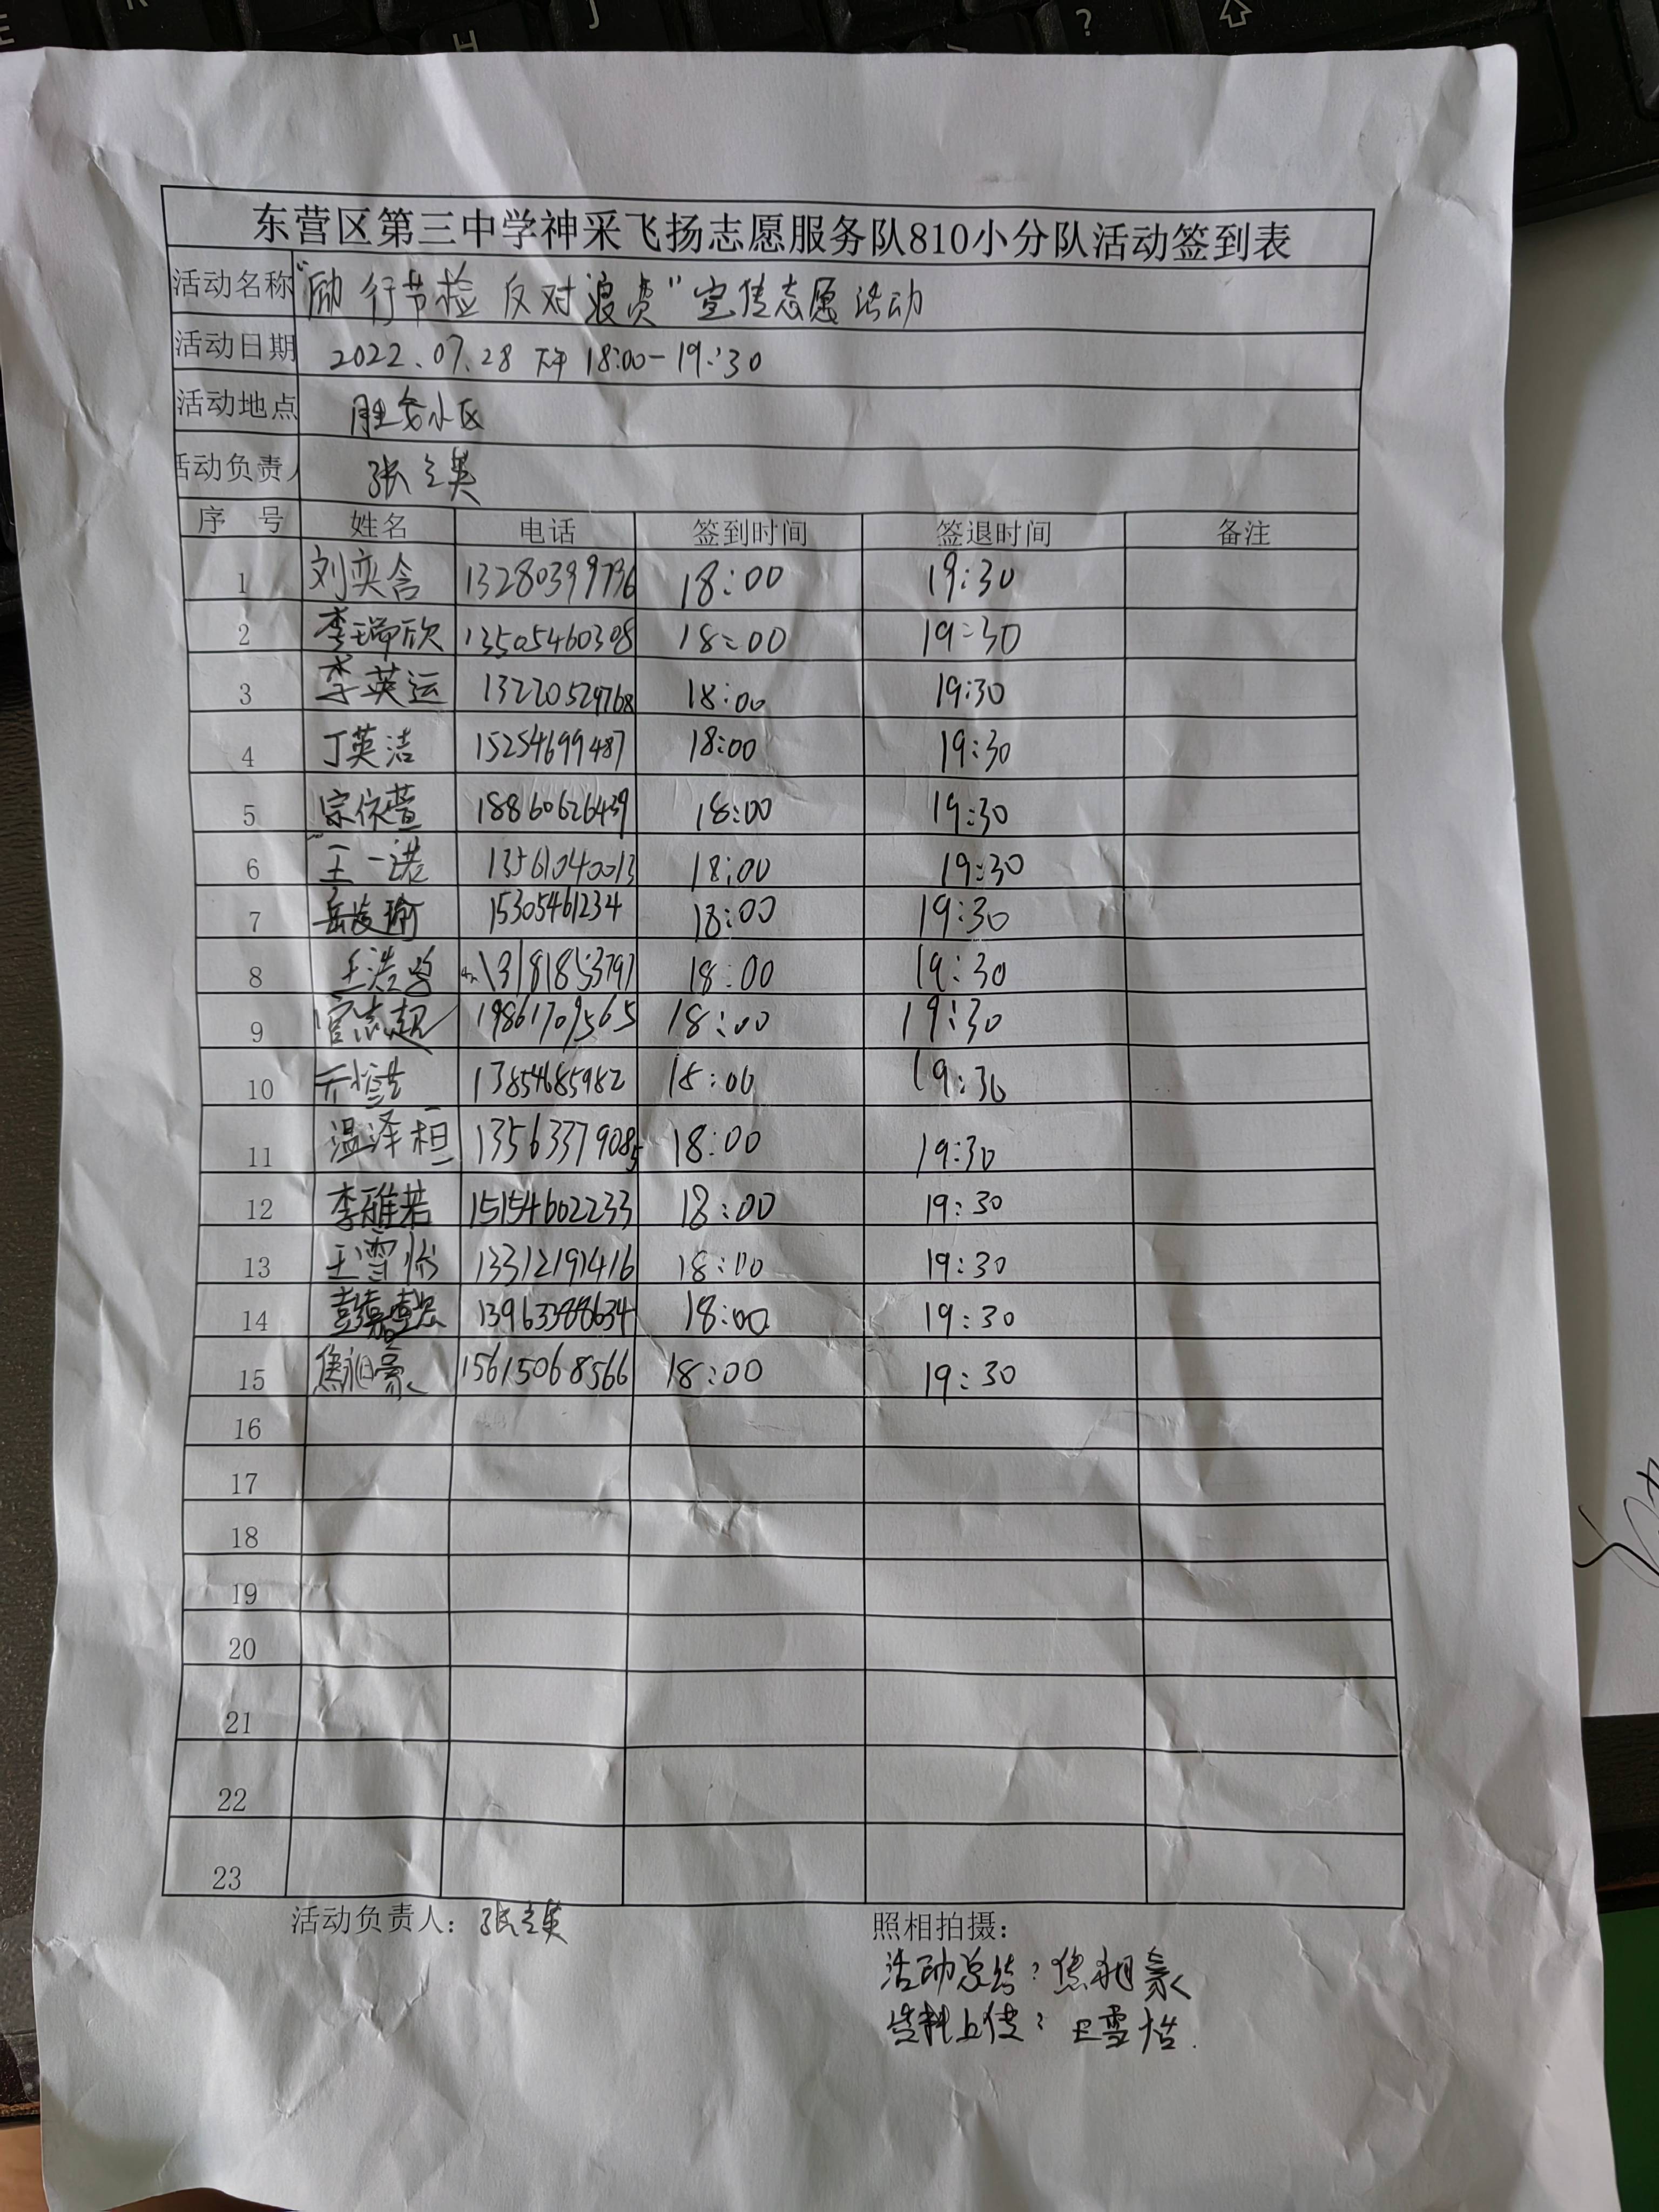 东营区第三中学神采飞扬志愿服务队810小分队活动签到表
活动名称 "励行节检 反对浪费"宣传志愿活动
活动日期 2022.07.28 下午 18:00-19:30
活动地点 胜宏小区
活动负责人 张立英
序 号 姓名 电话 签到时间 签退时间 备注
1 刘奕含 13280399736 18:00 19:30
2 李瑞欣 13505460308 18:00 19:30
3 李英运 13220529768 18:00 19:30
4 丁英洁 15254699487 18:00 19:30
5 宗依萱 18860626439 18:00 19:30
6 王一诺 13561040013 18:00 19:30
7 15305461234 18:00 19:30
8 13181853797 18:00 19:30
9 官志超 19861709565 18:00 19:30
10 13854685982 18:00 19:30
11 温泽桓 13563379085 18:00 19:30
12 李雅若 15154602233 18:00 19:30
13 王雪怡 13312191416 18:00 19:30
14 13963388634 18:00 19:30
15 焦昶豪 15615068566 18:00 19:30
16
17
18
19
20
21
22
23
活动负责人: 张立英 照相拍摄:
活动总结: 焦昶豪
资料上传: 王雪怡.